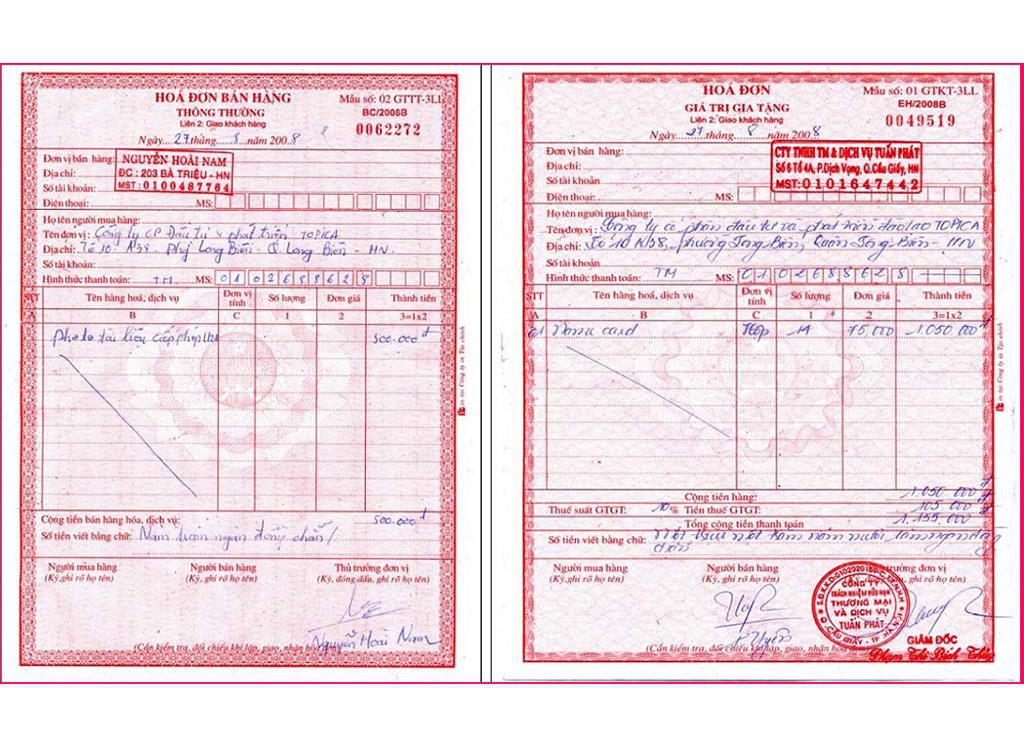 HOÁ ĐƠN BÁN HÀNG
THÔNG THƯỜNG
Liên 2: Giao khách hàng
Mẫu số: 02 GTTT-3LL
BC/2008B
0062272
Ngày....27 tháng....8....năm 200.8
Đơn vị bán hàng: NGUYỄN HOÀI NAM
Địa chỉ: ĐC : 203 BÀ TRIỆU - HN
Số tài khoản: MST: 0100487764
Điện thoại: MS:
Họ tên người mua hàng:
Tên đơn vị: Công ty CP Đầu tư & phát triển TOPICA
Địa chỉ: Tổ 10 - A38 - Long Biên - Q Long Biên - HN
Số tài khoản:
Hình thức thanh toán: TM MS: 0102688628
STT Tên hàng hoá, dịch vụ Đơn vị tính Số lượng Đơn giá Thành tiền
A B C 1 2 3=1x2
Photo tài liệu cấp 500.000đ
Cộng tiền bán hàng hóa, dịch vụ: 500.000đ
Số tiền viết bằng chữ: Năm trăm ngàn đồng chẵn/
Người mua hàng Người bán hàng Thủ trưởng đơn vị
(Ký,ghi rõ họ tên) (Ký, ghi rõ họ tên) (Ký, đóng dấu, ghi rõ họ tên)
Nguyễn Hoài Nam
(Cần kiểm tra, đối chiếu khi lập, giao, nhận hoá
HOÁ ĐƠN
GIÁ TRỊ GIA TĂNG
Liên 2: Giao khách hàng
Mẫu số: 01 GTKT-3LL
EH/2008B
0049519
Ngày....27....tháng....8....năm 200.8
Đơn vị bán hàng: CTY TNHH TM & DỊCH VỤ TUẤN PHÁT
Địa chỉ: Số 6 Tổ 4A, P.Dịch Vọng, Q.Cầu Giấy, HN
Số tài khoản MST: 0101647442
Điện thoại: MS:
Họ tên người mua hàng:
Tên đơn vị: Công ty cổ phần đầu tư và phát triển đào tạo TOPICA
Địa chỉ: Tổ 10 A38, phường Long Biên, Quận Long Biên - HN
Số tài khoản
Hình thức thanh toán: TM MS: 0102688628
STT Tên hàng hoá, dịch vụ Đơn vị tính Số lượng Đơn giá Thành tiền
A B C 1 2 3=1x2
01 Name card Hộp 14 75.000 1.050.000đ
Cộng tiền hàng: 1.050.000đ
Thuế suất GTGT: 10 % Tiền thuế GTGT: 105.000đ
Tổng cộng tiền thanh toán 1.155.000
Số tiền viết bằng chữ: Một triệu một trăm năm mươi lăm ngàn đồng
chẵn
Người mua hàng Người bán hàng Thủ trưởng đơn vị
(Ký,ghi rõ họ tên) (Ký, ghi rõ họ tên)
CÔNG TY
TRÁCH NHIỆM HỮU HẠN
THƯƠNG MẠI
VÀ DỊCH VỤ
TUẤN PHÁT
Q.CẦU GIẤY - TP HÀ NỘI
GIÁM ĐỐC
Phạm Thị Bích Thủy
(Cần kiểm tra, đối chiếu khi lập, giao, nhận hoá